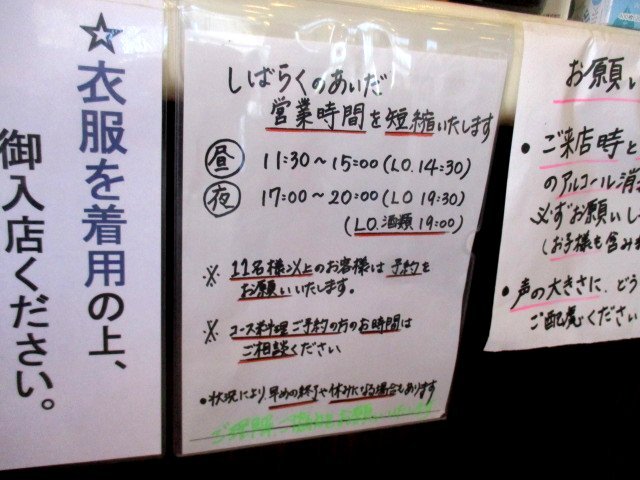 ☆衣服を着用の上、
御入店ください。
しばらくのあいだ
営業時間を短縮いたします
昼 11:30～15:00(L.O. 14:30)
夜 17:00～20:00(L.O 19:30)
(L.O.酒類 19:00)
※ 11名様以上のお客様は予約を
お願いいたします。
※ コース料理ご予約の方のお時間は
ご相談ください
•状況により早めの終了や休みになる場合もあります
お願い
•ご来店時と
のアルコール消
必ずお願いし
(お子様も含み
•声の大きさに、どう
ご配慮ください